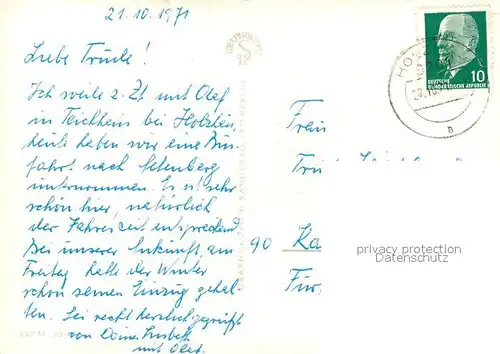 21.10.1971
Liebe Trude!
Ich weile z. Zt. mit Olaf
in Teichheim bei Holzhau,
heute haben wir eine Bus-
fahrt nach Altenberg
unternommen. Es ist sehr
schön hier, natürlich
der Jahreszeit entsprechend.
Bei unserer Ankunft am
Freitag hatte der Winter
schon seinen Einzug gehal-
ten. Sei recht herzlich gegrüßt
von Deiner Lisbeth
mit Olaf.
10
DEUTSCHE
DEMOKRATISCHE REPUBLIK
HO
a
90
Ka
privacy protection
Datenschutz